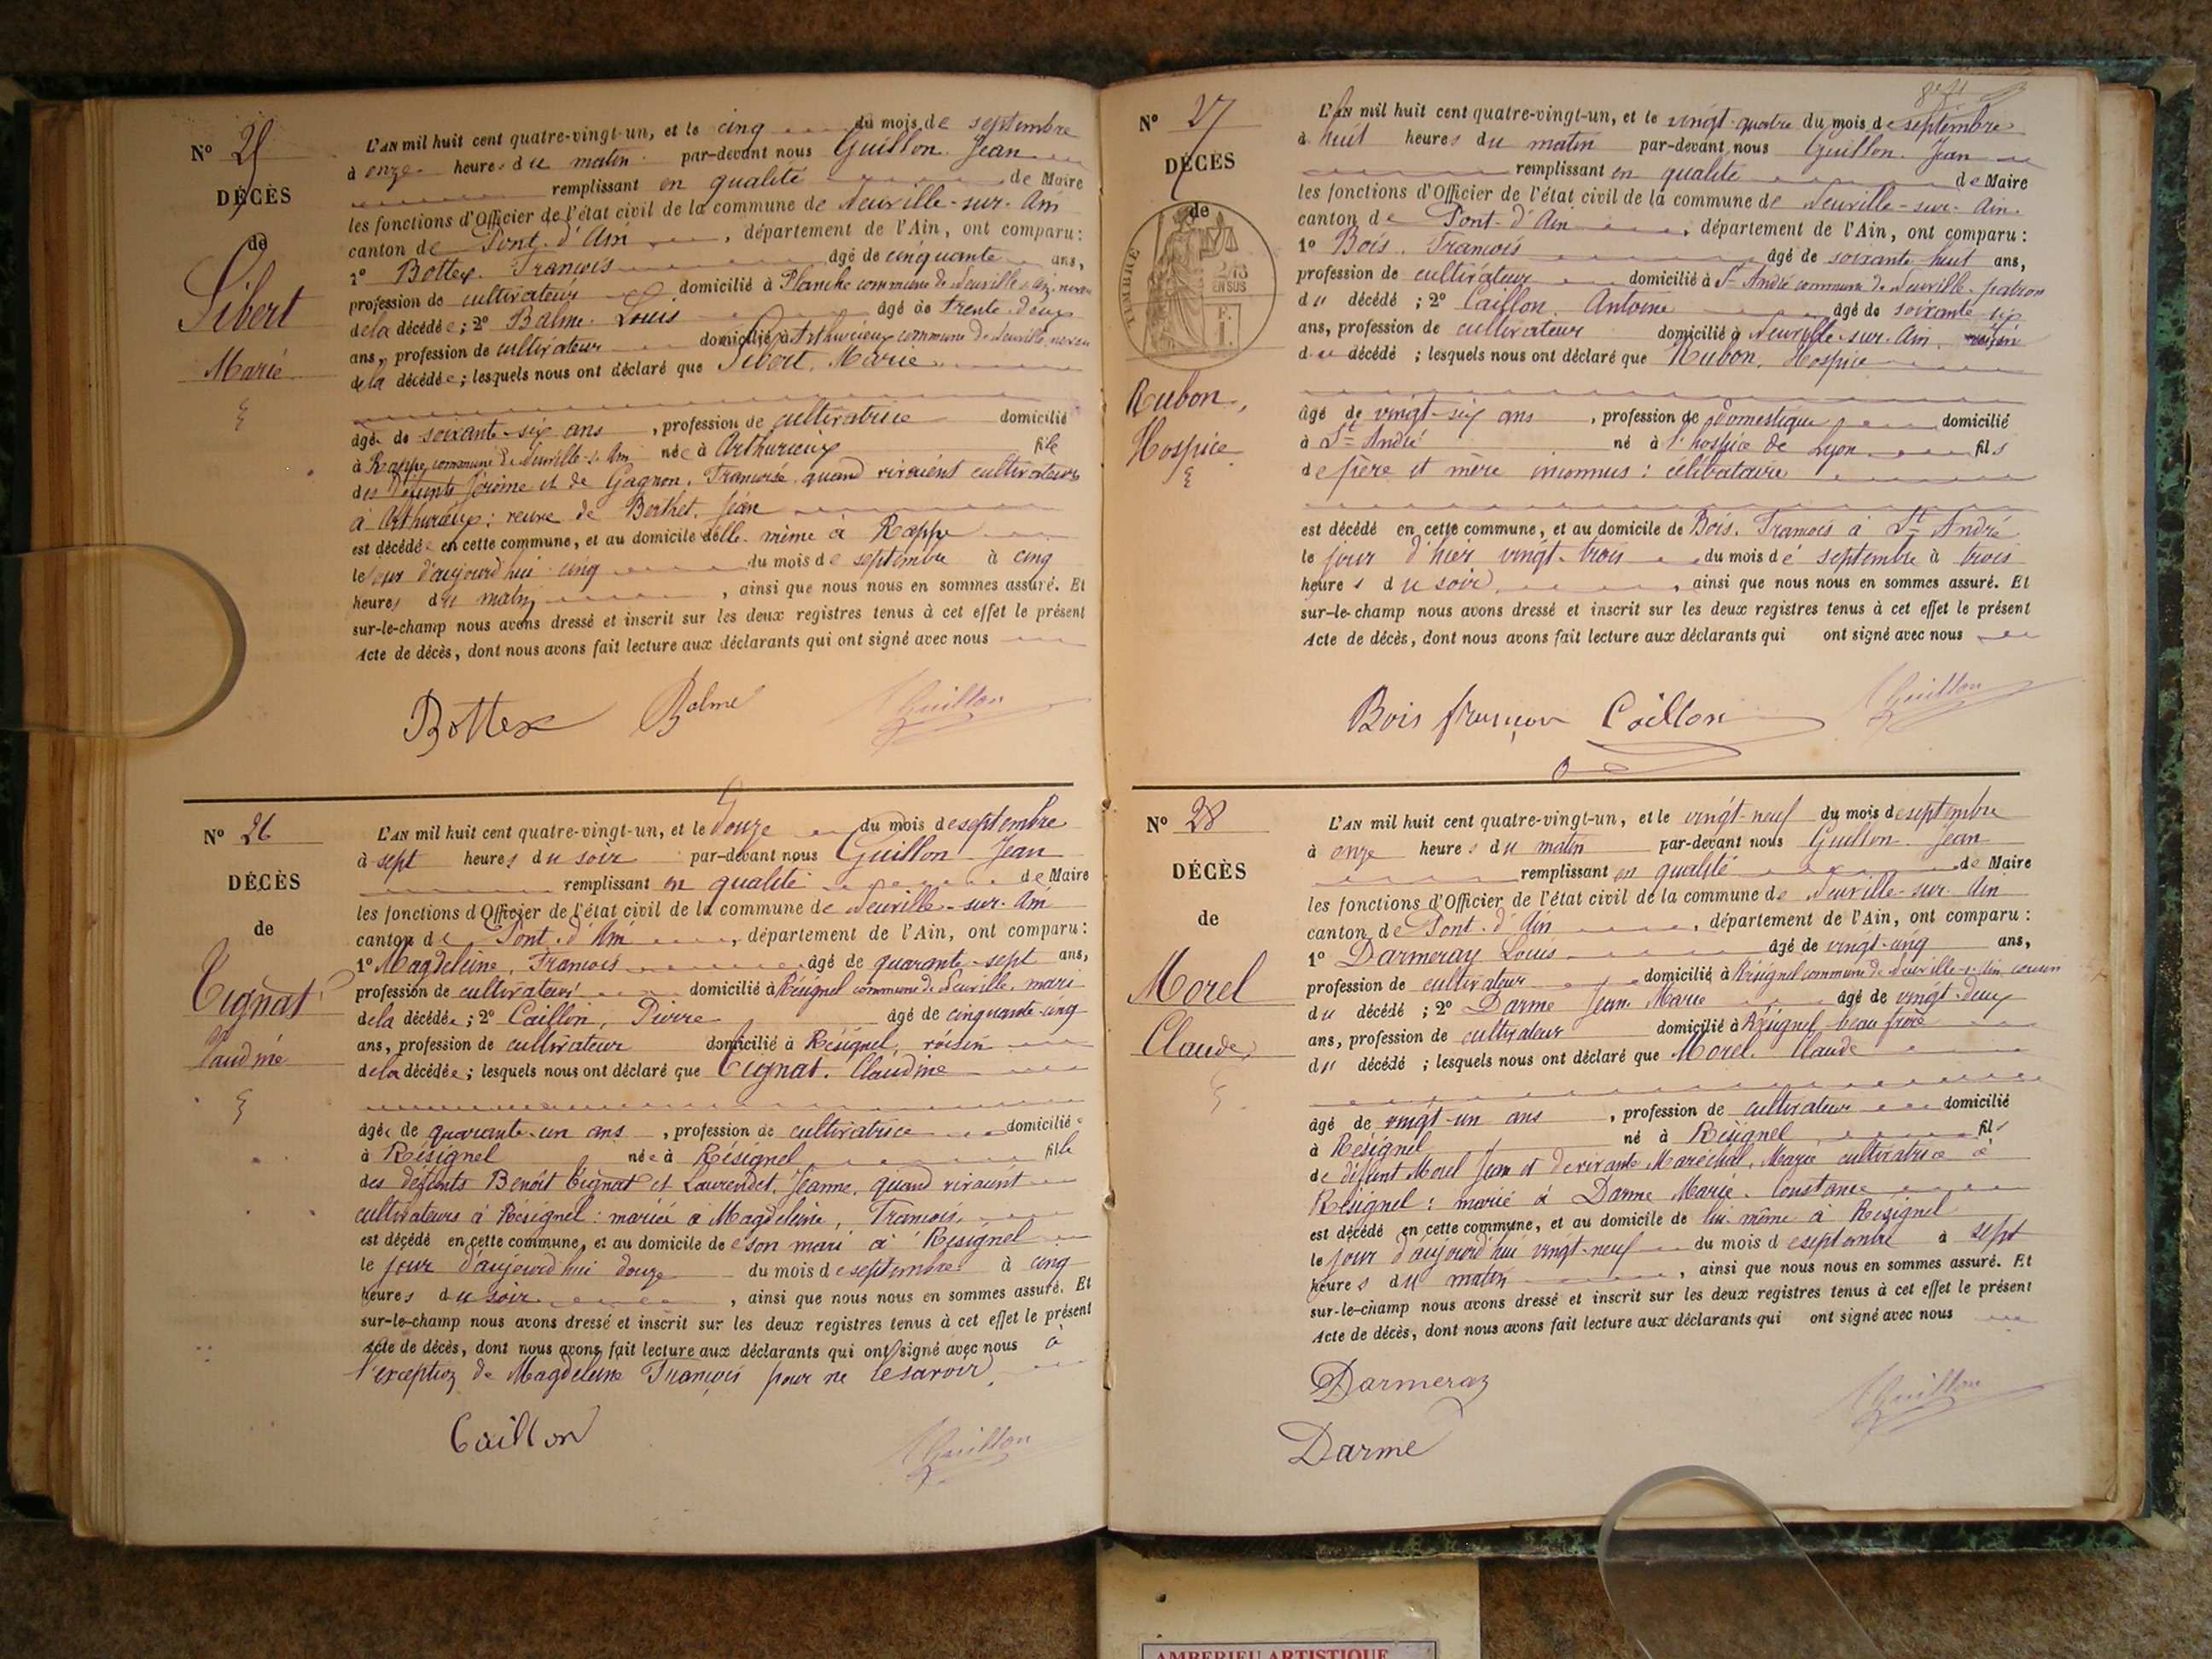 Nº 25
DÉCÈS
de
Sibert
Marie
L'AN mil huit cent quatre-vingt-un, et le cinq du mois de septembre
à onze heures du matin par-devant nous Guillon Jean
remplissant en qualité de Maire
les fonctions d'Officier de l'état civil de la commune de Neuville-sur-Ain
canton de Pont-d'Ain, département de l'Ain, ont comparu:
1º Bottex François âgé de cinquante ans,
profession de cultivateur domicilié à Planche commune de Neuville s. Ain neveu
de la décédée; 2º Balme Louis âgé de trente-deux
ans, profession de cultivateur domicilié à Arthurieux commune de Neuville neveu
de la décédée; lesquels nous ont déclaré que Sibert, Marie
âgée de soixante-six ans, profession de cultivatrice domicilié
à Rappe commune de Neuville-s-Ain née à Arthurieux file
des défunts Jérôme et de Gagnon, Françoise quand vivaient cultivateurs
à Arthurieux: veuve de Berthet, Jean
est décédée en cette commune, et au domicile d'elle-même à Rappe
le jour d'aujourd'hui cinq du mois de septembre à cinq
heures du matin, ainsi que nous nous en sommes assuré. Et
sur-le-champ nous avons dressé et inscrit sur les deux registres tenus à cet effet le présent
Acte de décès, dont nous avons fait lecture aux déclarants qui ont signé avec nous
Bottex Balme Guillon
Nº 26
DÉCÈS
de
Tignat
Claudine
L'AN mil huit cent quatre-vingt-un, et le douze du mois de septembre
à sept heures du soir par-devant nous Guillon Jean
remplissant en qualité de Maire
les fonctions d'Officier de l'état civil de la commune de Neuville-sur-Ain
canton de Pont-d'Ain, département de l'Ain, ont comparu:
1º Magdeleine, François âgé de quarante-sept ans,
profession de cultivateur domicilié à Résignel commune de Neuville, mari
de la décédée; 2º Caillon, Pierre âgé de cinquante-cinq
ans, profession de cultivateur domicilié à Résignel, voisin
de la décédée; lesquels nous ont déclaré que Tignat, Claudine
âgée de quarante-un ans, profession de cultivatrice domiciliée
à Résignel née à Résignel fille
des défunts Benoît Tignat et Laurendet, Jeanne, quand vivaient
cultivateurs à Résignel: mariée à Magdeleine, François,
est décédé en cette commune, et au domicile de son mari à Résignel
le jour d'aujourd'hui douze du mois de septembre à cinq
heures du soir, ainsi que nous nous en sommes assuré. Et
sur-le-champ nous avons dressé et inscrit sur les deux registres tenus à cet effet le présent
Acte de décès, dont nous avons fait lecture aux déclarants qui ont signé avec nous à
l'exception de Magdeleine François pour ne le savoir.
Caillon Guillon
Nº 27
DÉCÈS
de
TIMBRE
2/10
EN SUS
Rubon,
Hospice
L'AN mil huit cent quatre-vingt-un, et le vingt-quatre du mois de septembre
à huit heures du matin par-devant nous Guillon Jean
remplissant en qualité de Maire
les fonctions d'Officier de l'état civil de la commune de Neuville-sur-Ain.
canton de Pont-d'Ain, département de l'Ain, ont comparu:
1º Bois, François âgé de soixante huit ans,
profession de cultivateur domicilié à St André commune de Neuville, patron
du décédé; 2º Caillon, Antoine âgé de soixante-six
ans, profession de cultivateur domicilié à Neuville-sur-Ain, voisin
du décédé; lesquels nous ont déclaré que Rubon, Hospice
âgé de vingt-six ans, profession de domestique domicilié
à St André né à l'hospice de Lyon fils
de père et mère inconnus: célibataire
est décédé en cette commune, et au domicile de Bois, François à St André
le jour d'hier vingt-trois du mois de septembre à trois
heures du soir, ainsi que nous nous en sommes assuré. Et
sur-le-champ nous avons dressé et inscrit sur les deux registres tenus à cet effet le présent
Acte de décès, dont nous avons fait lecture aux déclarants qui ont signé avec nous
Bois françois Caillon Guillon
Nº 28
DÉCÈS
de
Morel
Claude
L'AN mil huit cent quatre-vingt-un, et le vingt-neuf du mois de septembre
à onze heures du matin par-devant nous Guillon Jean
remplissant en qualité de Maire
les fonctions d'Officier de l'état civil de la commune de Neuville-sur-Ain
canton de Pont-d'Ain, département de l'Ain, ont comparu:
1º Darmeray Louis âgé de vingt-cinq ans,
profession de cultivateur domicilié à Résignel commune de Neuville-s-Ain cousin
du décédé; 2º Darme Jean-Marie âgé de vingt-deux
ans, profession de cultivateur domicilié à Résignel, beau frère
du décédé; lesquels nous ont déclaré que Morel, Claude
âgé de vingt-un ans, profession de cultivateur domicilié
à Résignel né à Résignel fils
de défunt Morel Jean et de vivante Maréchal, Marie cultivatrice à
Résignel: marié à Darme Marie-Constance
est décédé en cette commune, et au domicile de lui-même à Résignel
le jour d'aujourd'hui vingt-neuf du mois de septembre à sept
heures du matin, ainsi que nous nous en sommes assuré. Et
sur-le-champ nous avons dressé et inscrit sur les deux registres tenus à cet effet le présent
Acte de décès, dont nous avons fait lecture aux déclarants qui ont signé avec nous
Darmeraz Guillon
Darme
AMBERIEU ARTISTIQUE